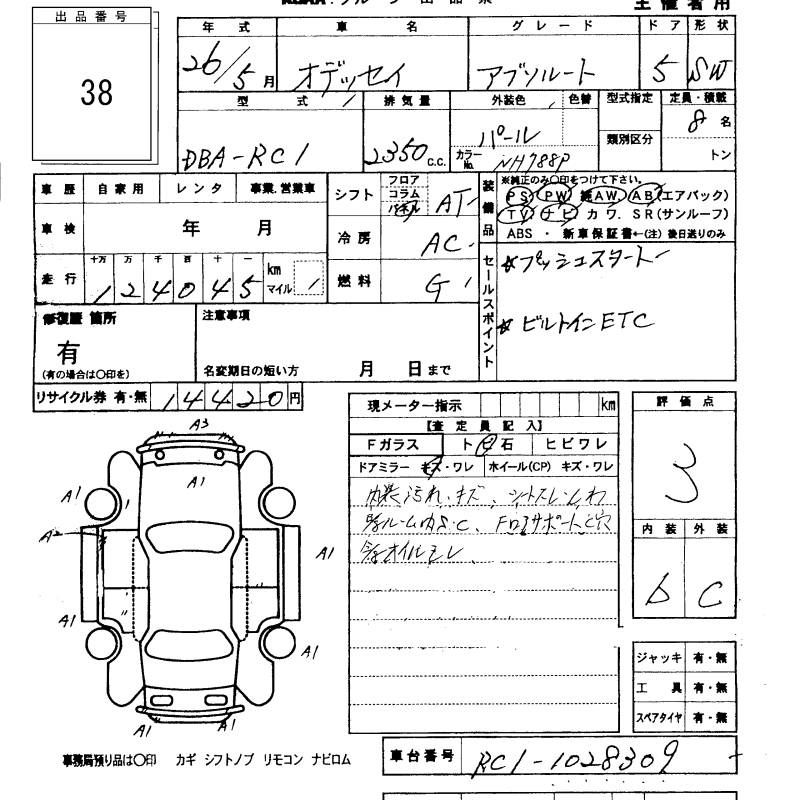 主催者用
出品番号
38
年式 車名 グレード ドア 形状
26/5月 オデッセイ アブソルート 5 SW
型式 排気量 外装色 色替 型式指定 定員・積載
DBA-RC1 2350 c.c. パール 類別区分 8名
カラーNo. NH788P トン
車歴 自家用 レンタ 事業.営業車
車検 年 月
走行 十万 万 千 百 十 一 km マイル
124045
シフト フロア コラム パネル AT
冷房 AC
燃料 G
装備品 ※純正のみ○印をつけて下さい。
PS PW 純AW. AB(エアバック)
TV ナビ カワ. SR(サンルーフ)
ABS ・ 新車保証書←(注) 後日送りのみ
セールスポイント
☆プッシュスタート
☆ビルトインETC
修復歴 箇所
有
(有の場合は○印を)
注意事項
名変期日の短い方 月 日まで
リサイクル券 有・無 14420円
現メーター指示 km
【査定員記入】
Fガラス トビ石 ヒビワレ
ドアミラー キズ・ワレ ホイール(CP) キズ・ワレ
内装汚れ、キズ、シートスレ
ルーム内S・C、 サポート 穴
オイルモレ
評価点
3
内装 外装
b C
A3
A1
A1
A1
A2
A1
A1
A1
A1
A1
A1
ジャッキ 有・無
工具 有・無
スペアタイヤ 有・無
事務局預り品は○印 カギ シフトノブ リモコン ナビロム
車台番号 RC1-1028309